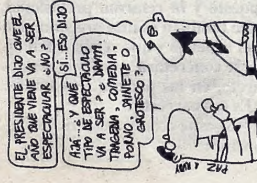 EL PRESIDENTE DIJO QUE EL
AÑO QUE VIENE VA A SER
ESPECTACULAR ¿NO?
SÍ... ESO DIJO
AJA... ¿Y QUE
TIPO DE ESPECTÁCULO
VA A SER? ¿DRAMA,
TRAGEDIA, COMEDIA,
PORNO, SAINETE O
GROTESCO?
PAZ & RUDY